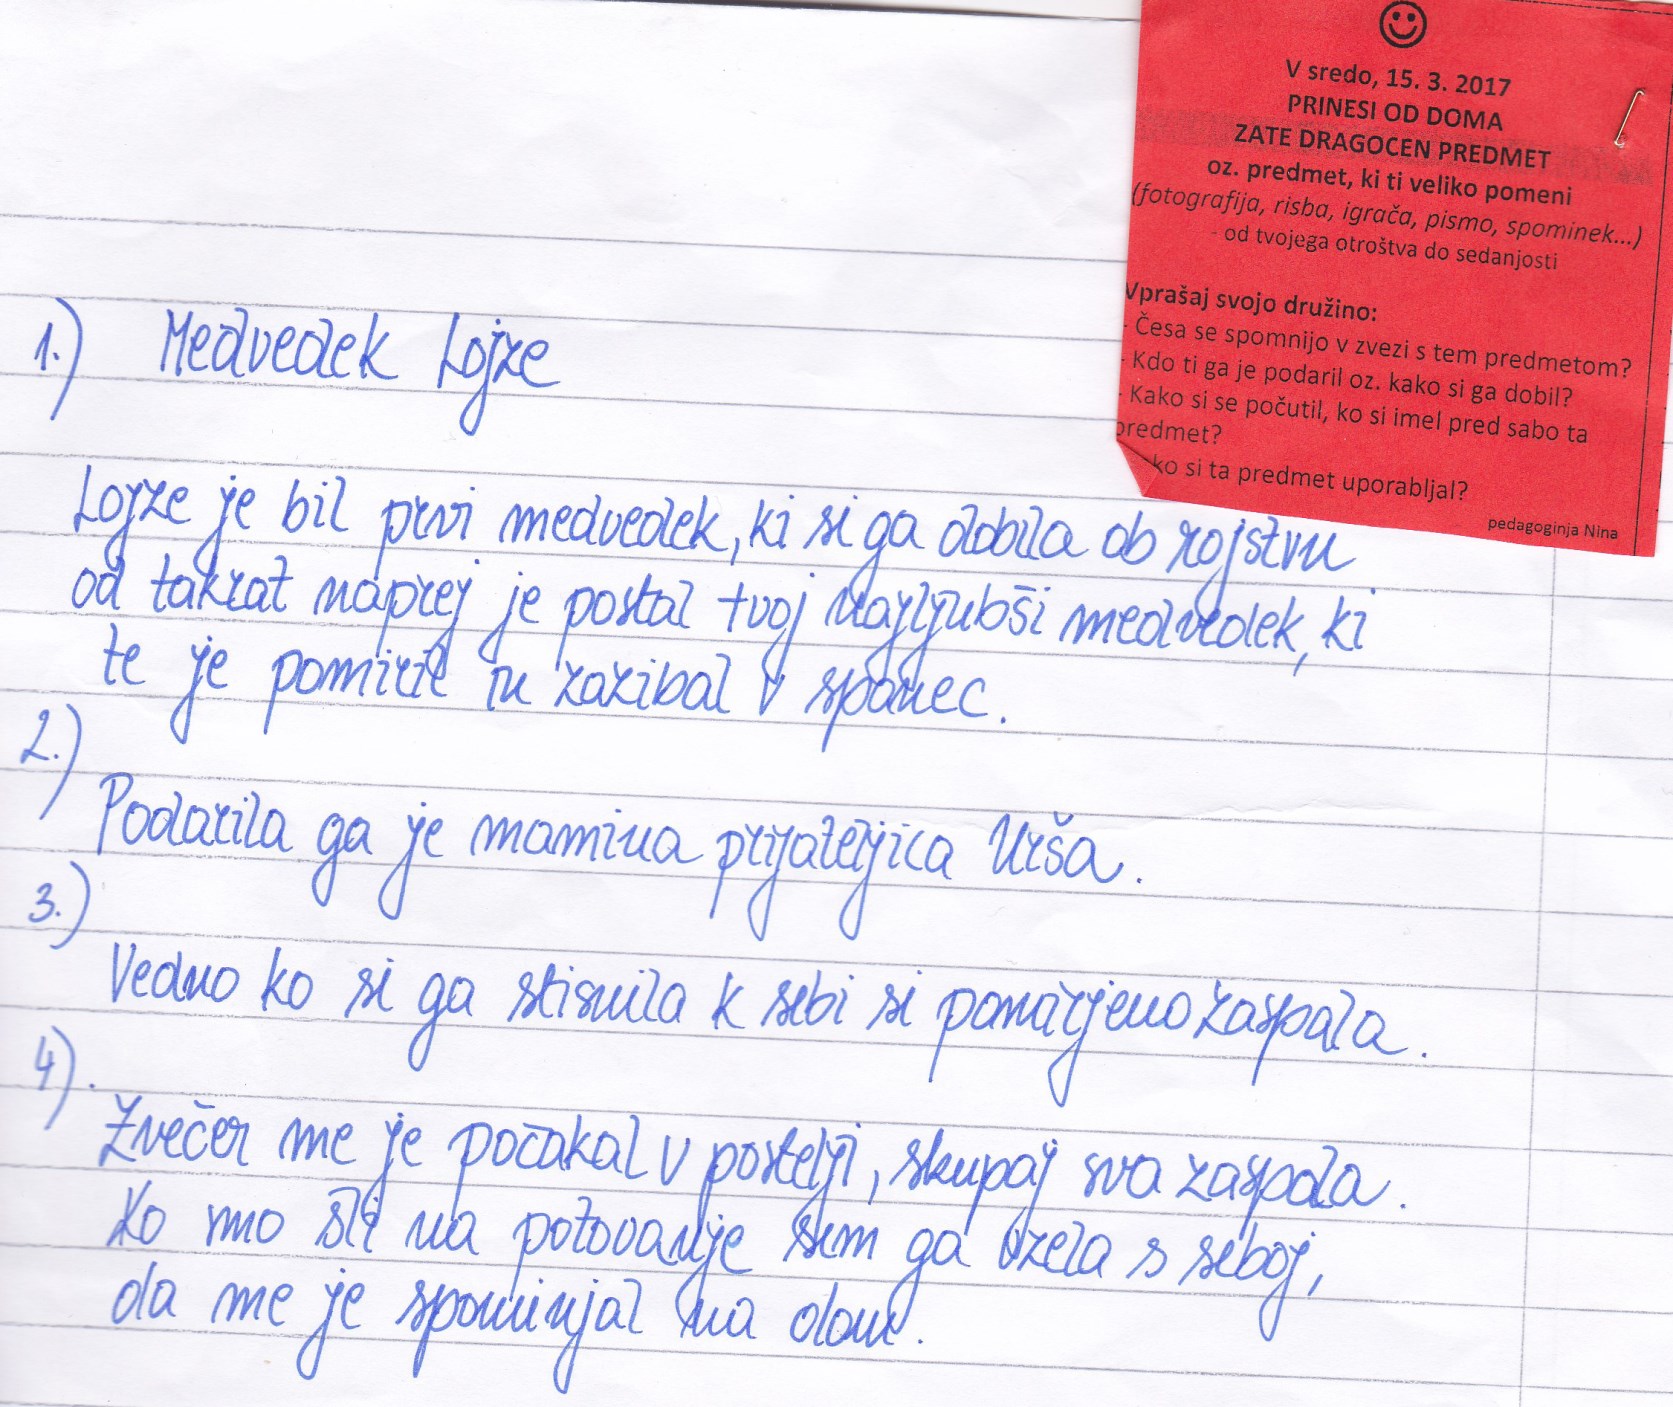 V sredo, 15. 3. 2017
PRINESI OD DOMA
ZATE DRAGOCEN PREDMET
oz. predmet, ki ti veliko pomeni
(fotografija, risba, igrača, pismo, spominek...)
- od tvojega otroštva do sedanjosti
Vprašaj svojo družino:
- Česa se spomnijo v zvezi s tem predmetom?
- Kdo ti ga je podaril oz. kako si ga dobil?
- Kako si se počutil, ko si imel pred sabo ta
predmet?
ko si ta predmet uporabljal?
pedagoginja Nina
1.) Medvedek Lojze
Lojze je bil prvi medvedek, ki si ga dobila ob rojstvu
od takrat naprej je postal tvoj najljubši medvedek, ki
te je pomiril in zazibal v spanec.
2.)
Podarila ga je mamina prijateljica Urša.
3.)
Vedno ko si ga stisnila k sebi si pomirjeno zaspala.
4).
Zvečer me je počakal v postelji, skupaj sva zaspala.
Ko smo šli na potovanje sem ga vzela s seboj,
da me je spominjal na dom.